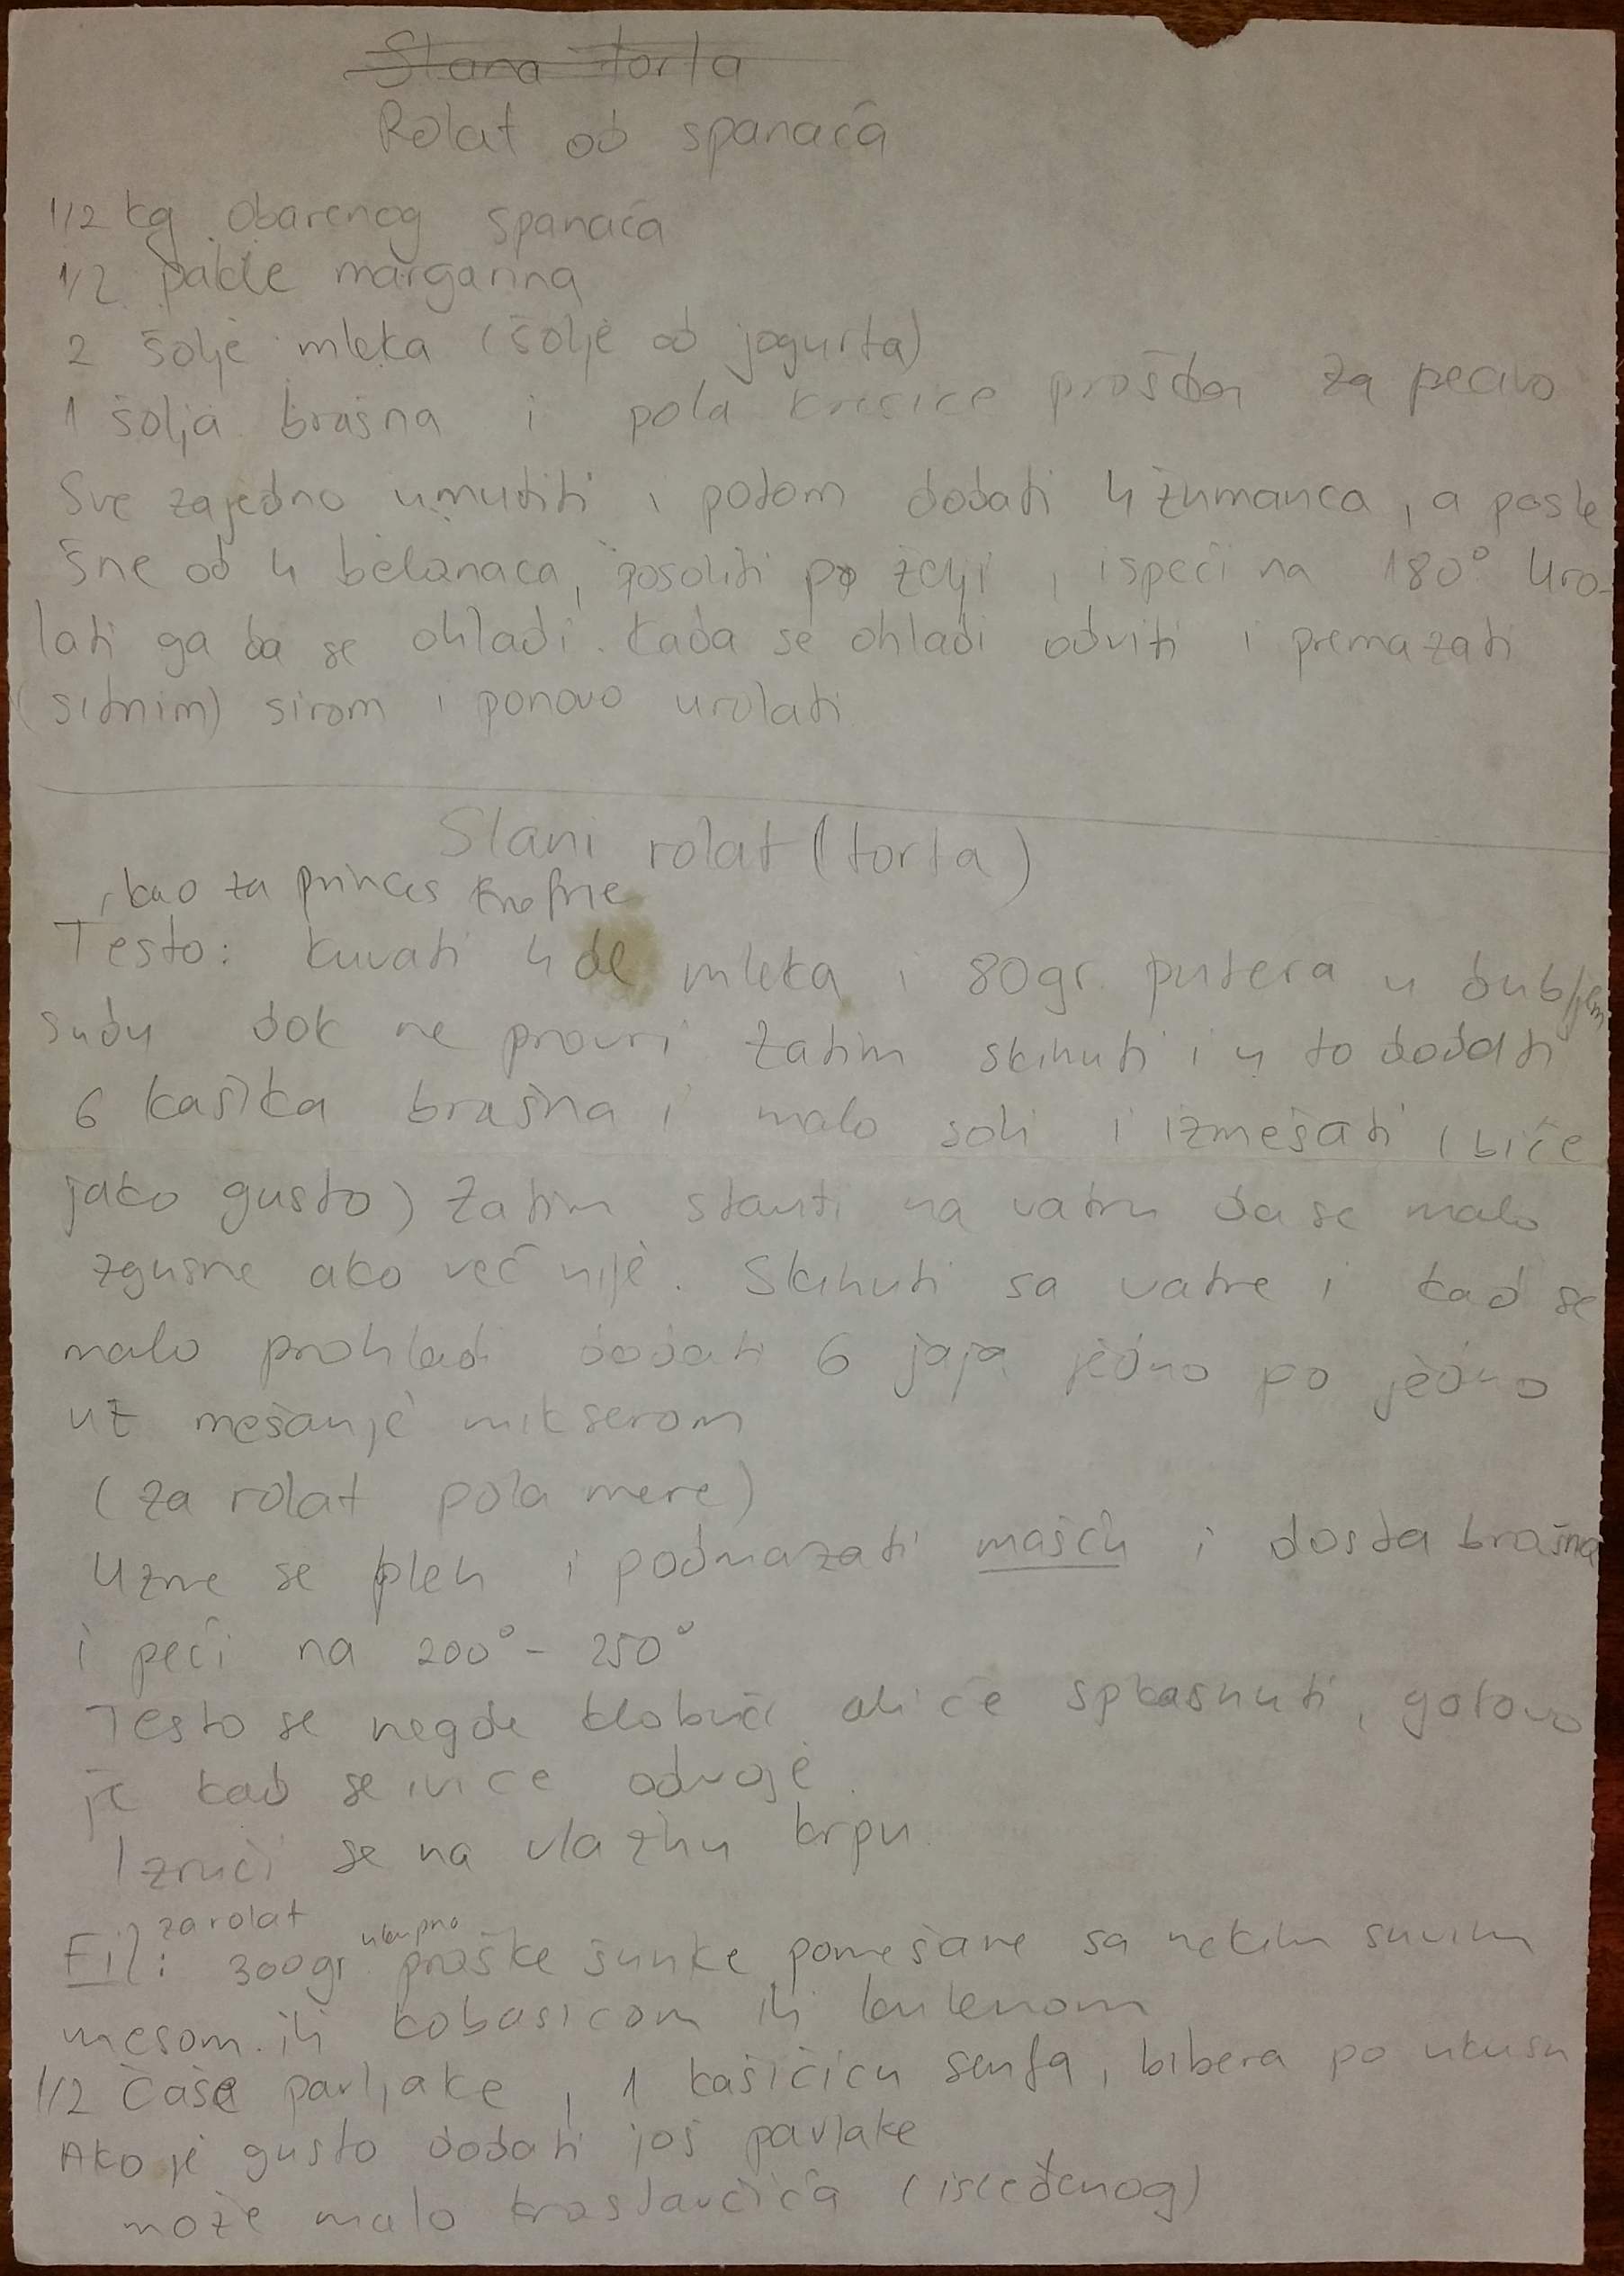 Slana torta
Rolat od spanaća
1/2 kg obarenog spanaća
1/2 pakle margarina
2 šolje mleka (šolje od jogurta)
1 šolja brašna i pola kesice praška za pecivo
Sve zajedno umutiti i potom dodati 4 žumanca, a posle
šne od 4 belanaca, posoliti po želji, ispeći na 180° Uro-
lati ga da se ohladi. Kada se ohladi odviti i premazati
(sitnim) sirom i ponovo urolati
Slani rolat (torta)
kao za princes krofne
Testo: kuvati 4 dl mleka i 80gr putera u dubljem
sudu dok ne provri zatim skinuti i u to dodati
6 kašika brašna i malo soli i izmešati (biće
jako gusto) Zatim stavti na vatru da se malo
zgusne ako već nije. Skinuti sa vatre i kad se
malo prohladi dodati 6 jaja jedno po jedno
uz mešanje mikserom
(za rolat pola mere)
Uzme se pleh i podmazati mašću i dosta brašna
i peći na 200° - 250°
Testo se negde klobuči ali će splasnuti, gotovo
je kad se ivice odvoje.
Izruči se na vlažnu krpu.
za rolat
Fil: 300gr ukupno praške šunke pomešane sa nekim suvim
mesom ili kobasicom ili kulenom
1/2 čaše pavljake, 1 kašičicu senfa, bibera po ukusu
Ako je gusto dodati još pavlake
može malo krastavčića (isceđenog)